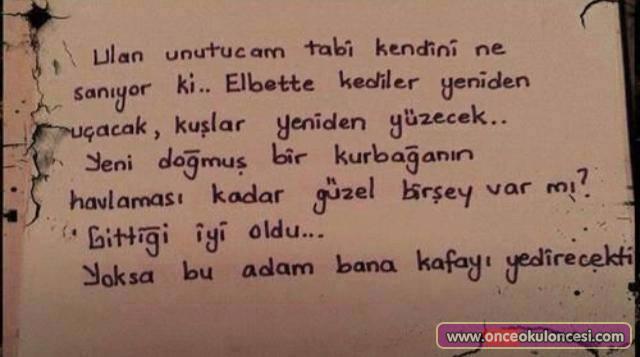 Ulan unutucam tabi kendini ne
sanıyor ki.. Elbette kediler yeniden
uçacak, kuşlar yeniden yüzecek..
Yeni doğmuş bir kurbağanın
havlaması kadar güzel birşey var mı?
Gittiği iyi oldu...
Yoksa bu adam bana kafayı yedirecekti
www.onceokuloncesi.com